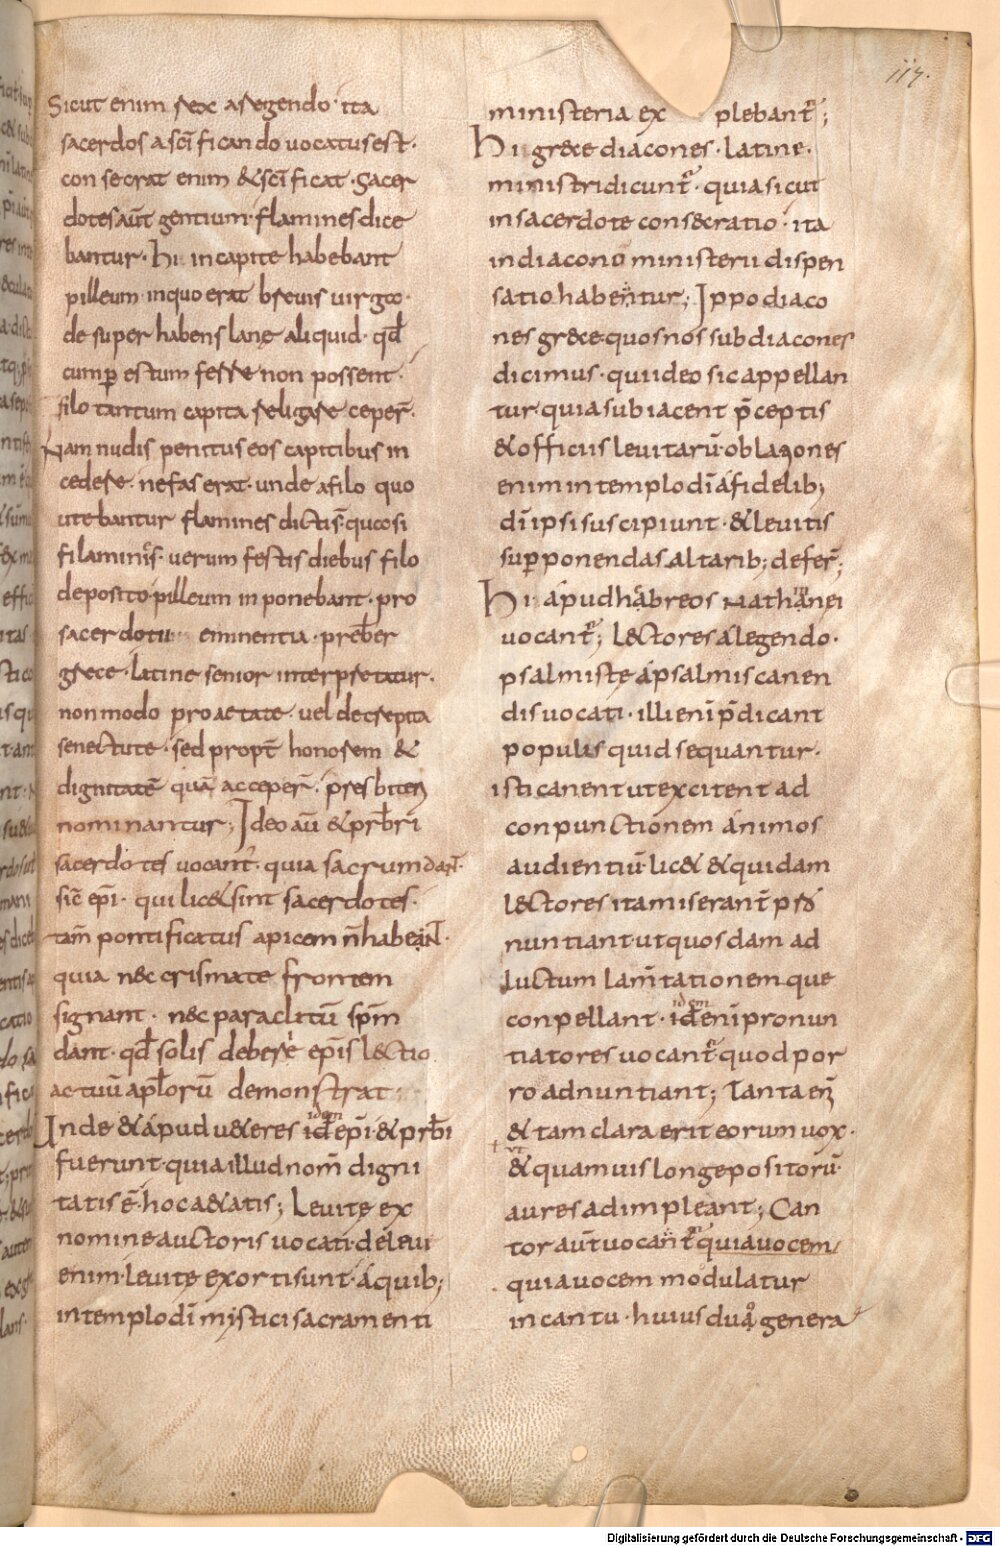 Sicut enim rex a regendo · ita
sacerdos a sc̄ificando uocatus est ·
consecrat enim &sc̄ificat · Sacer
dotes aut̄ gentium · flamines dice
bantur · Hi in capite habebant
pilleum · in quo erat breuis uirga ·
desuper habens lanę aliquid · qd̄
cum p̄ estum ferre non possent ·
filo tantum capita religare ceper̄ ·
Nam nudis penitus eos capitibus in
cedere · nefas erat · unde a filo quo
utebantur flamines dicti s̄ · quasi
filamines · uerum festis diebus filo
deposito · pilleum inponebant · pro
sacerdotii eminentia · presb̄er
grece · latine senior interpretatur ·
non modo pro aetate · uel decrepita
senectute · sed propt̄ honorem &
dignitatē quā acceper̄ · presbiteri
nominantur ; Ideo aū & prb̄ri
sacerdotes uocant̄ · quia sacrum dant̄ ·
sic̄ ep̄i · qui lic& sint sacerdotes ·
tam̄ pontificatus apicem n̄ habeant ·
quia nec crismate frontem
signant · nec paraclitū sp̄m
dant · qd̄ solis debere ep̄is lectio
actuū apl̄orū demonstrat ·
Inde &ápud u&eres idem id̄ ep̄i · & prb̄i
fuerunt · quia illud nom̄ digni
tatis ē · hoc a&atis ; Leuitę ex
nomine auctoris uocati · de leui
enim · leuitę exorti sunt · á quib;
in templo dī mystici sacramenti
ministeria ex plebant̄ ;
Hi grece diacones · latine ·
ministri dicunt̄ · quia sicut
in sacerdote consecratio · ita
in diacono ministerii dispen
satio habentur ; Ippodiaco
nes grece · quos nos subdiacones
dicimus · qui ideo sic appellan
tur quia subiacent p̄ceptis
& officiis leuitarū · oblaciones
enim in templo dī á fidelib;
dī ipsi suscipiunt · & leuitis
sup̄ponendas altarib; defer̄ ;
Hi ápud hæbreos Nathanei
uocant̄ ; Lectores á legendo ·
psalmistę á psalmis canen
dis uocati · illi enī p̄dicant
populis quid sequantur ·
isti canent ut excitent ad
conpunctionem ánimos
audientiū · lic& & quidam
lectores ita miserant̄ p̄
nuntiant · ut quosdam ad
luctum lam̄tationemque
conpellant · idem id̄ enī pronun
tiatores uocant̄ quod por
ro adnuntiant ; Tanta eni
& tam clara erit eorum uox ·
ut & quamuis longe positorū
aures adimpleant ; Can
tor aut̄ uocant̄ quia uocem
quia uocem modulatur
in cantu · huius duo genera
117.
Digitalisierung gefördert durch die Deutsche Forschungsgemeinschaft - DFG